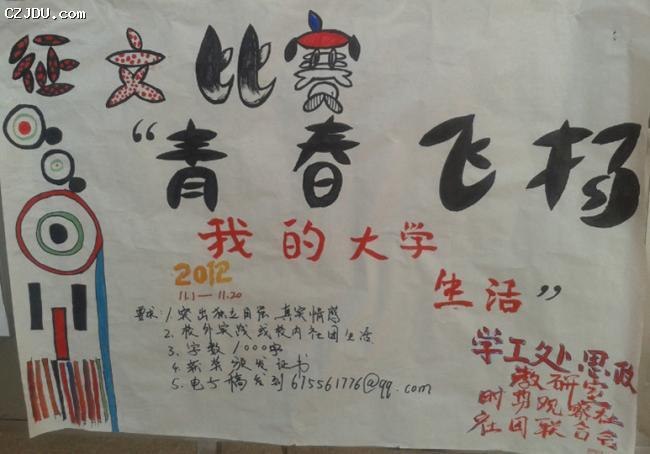 CZJDU.com
征文比赛
“青春飞扬
我的大学
生活”
2012
11.1—11.20
要求:1.突出独立自 真实情感
2.校外实践或校内社团生活
3.字数1000字
4.获奖颁发证书
5.电子稿发到675561776@qq.com
学工处思政
教研室
时势观察社
社团联合会